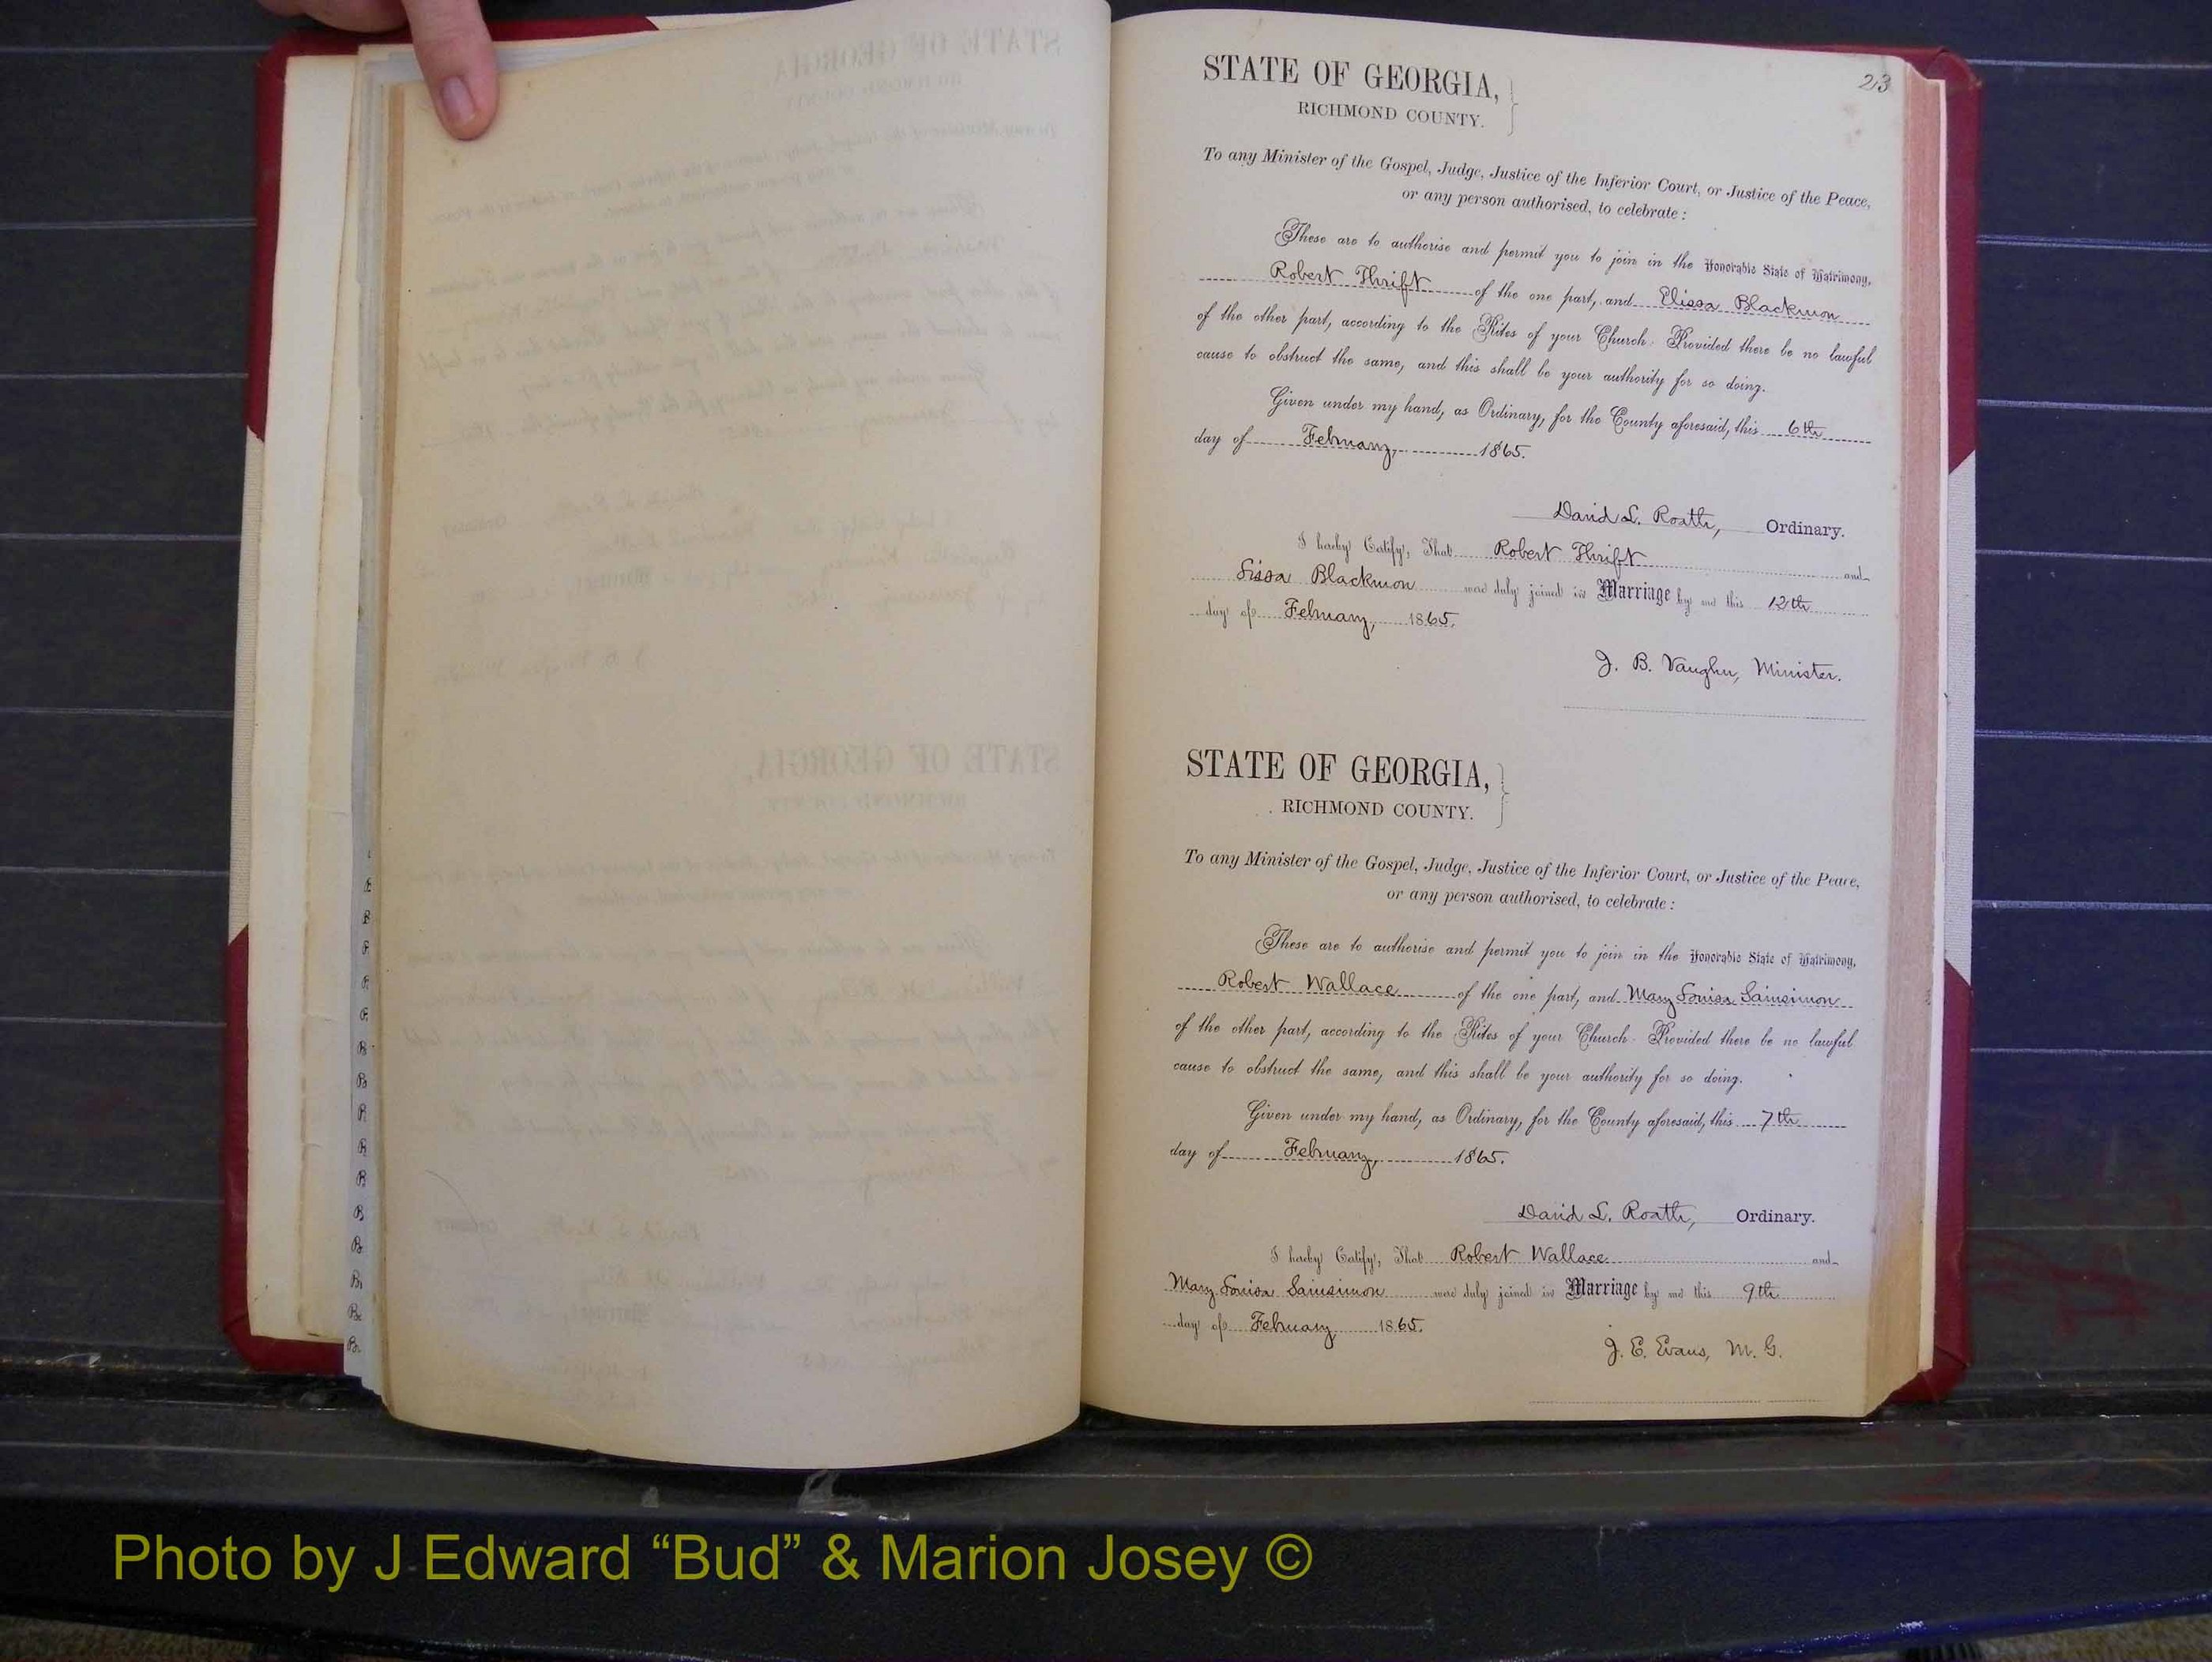 213
STATE OF GEORGIA,
RICHMOND COUNTY.
To any Minister of the Gospel, Judge, Justice of the Inferior Court, or Justice of the Peace,
or any person authorised, to celebrate:
These are to authorise and permit you to join in the Honorable State of Matrimony,
Robert Thrift of the one part, and Elissa Blackmon
of the other part, according to the Rites of your Church: Provided there be no lawful
cause to obstruct the same, and this shall be your authority for so doing.
Given under my hand, as Ordinary, for the County aforesaid, this 6th
day of February, 1865.
David L. Roath, Ordinary.
I hereby Certify, That Robert Thrift and
Sissa Blackmon were duly joined in Marriage by me this 12th
day of February, 1865.
J. B. Vaughn, Minister.
STATE OF GEORGIA,
RICHMOND COUNTY.
To any Minister of the Gospel, Judge, Justice of the Inferior Court, or Justice of the Peace,
or any person authorised, to celebrate:
These are to authorise and permit you to join in the Honorable State of Matrimony,
Robert Wallace of the one part, and Mary Louisa Sainsimon
of the other part, according to the Rites of your Church: Provided there be no lawful
cause to obstruct the same, and this shall be your authority for so doing.
Given under my hand, as Ordinary, for the County aforesaid, this 7th
day of February, 1865.
David L. Roath, Ordinary.
I hereby Certify, That Robert Wallace and
Mary Louisa Sainsimon were duly joined in Marriage by me this 9th
day of February 1865.
J. E. Evans, M. G.
Photo by J Edward “Bud” & Marion Josey ©